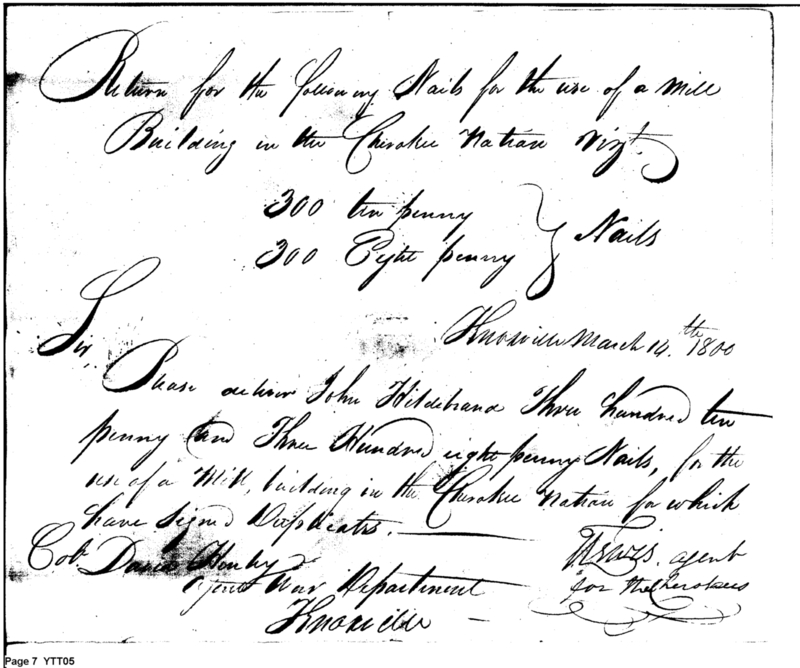 Return for the following Nails for the use of a Mill
Building in the Cherokee Nation Vizt.
300 ten penny
300 Eight penny } Nails
Knoxville March 14.th 1800
Sir,
Please deliver John Hildebrand Three hundred ten
penny and Three Hundred eight penny Nails, for the
use of a Mill, building in the Cherokee Nation for which
have Signed Duplicates.
Colo. David Henley
Agent War Department
Knoxville
Lewis. agent
for the Cherokees
Page 7 YTT05